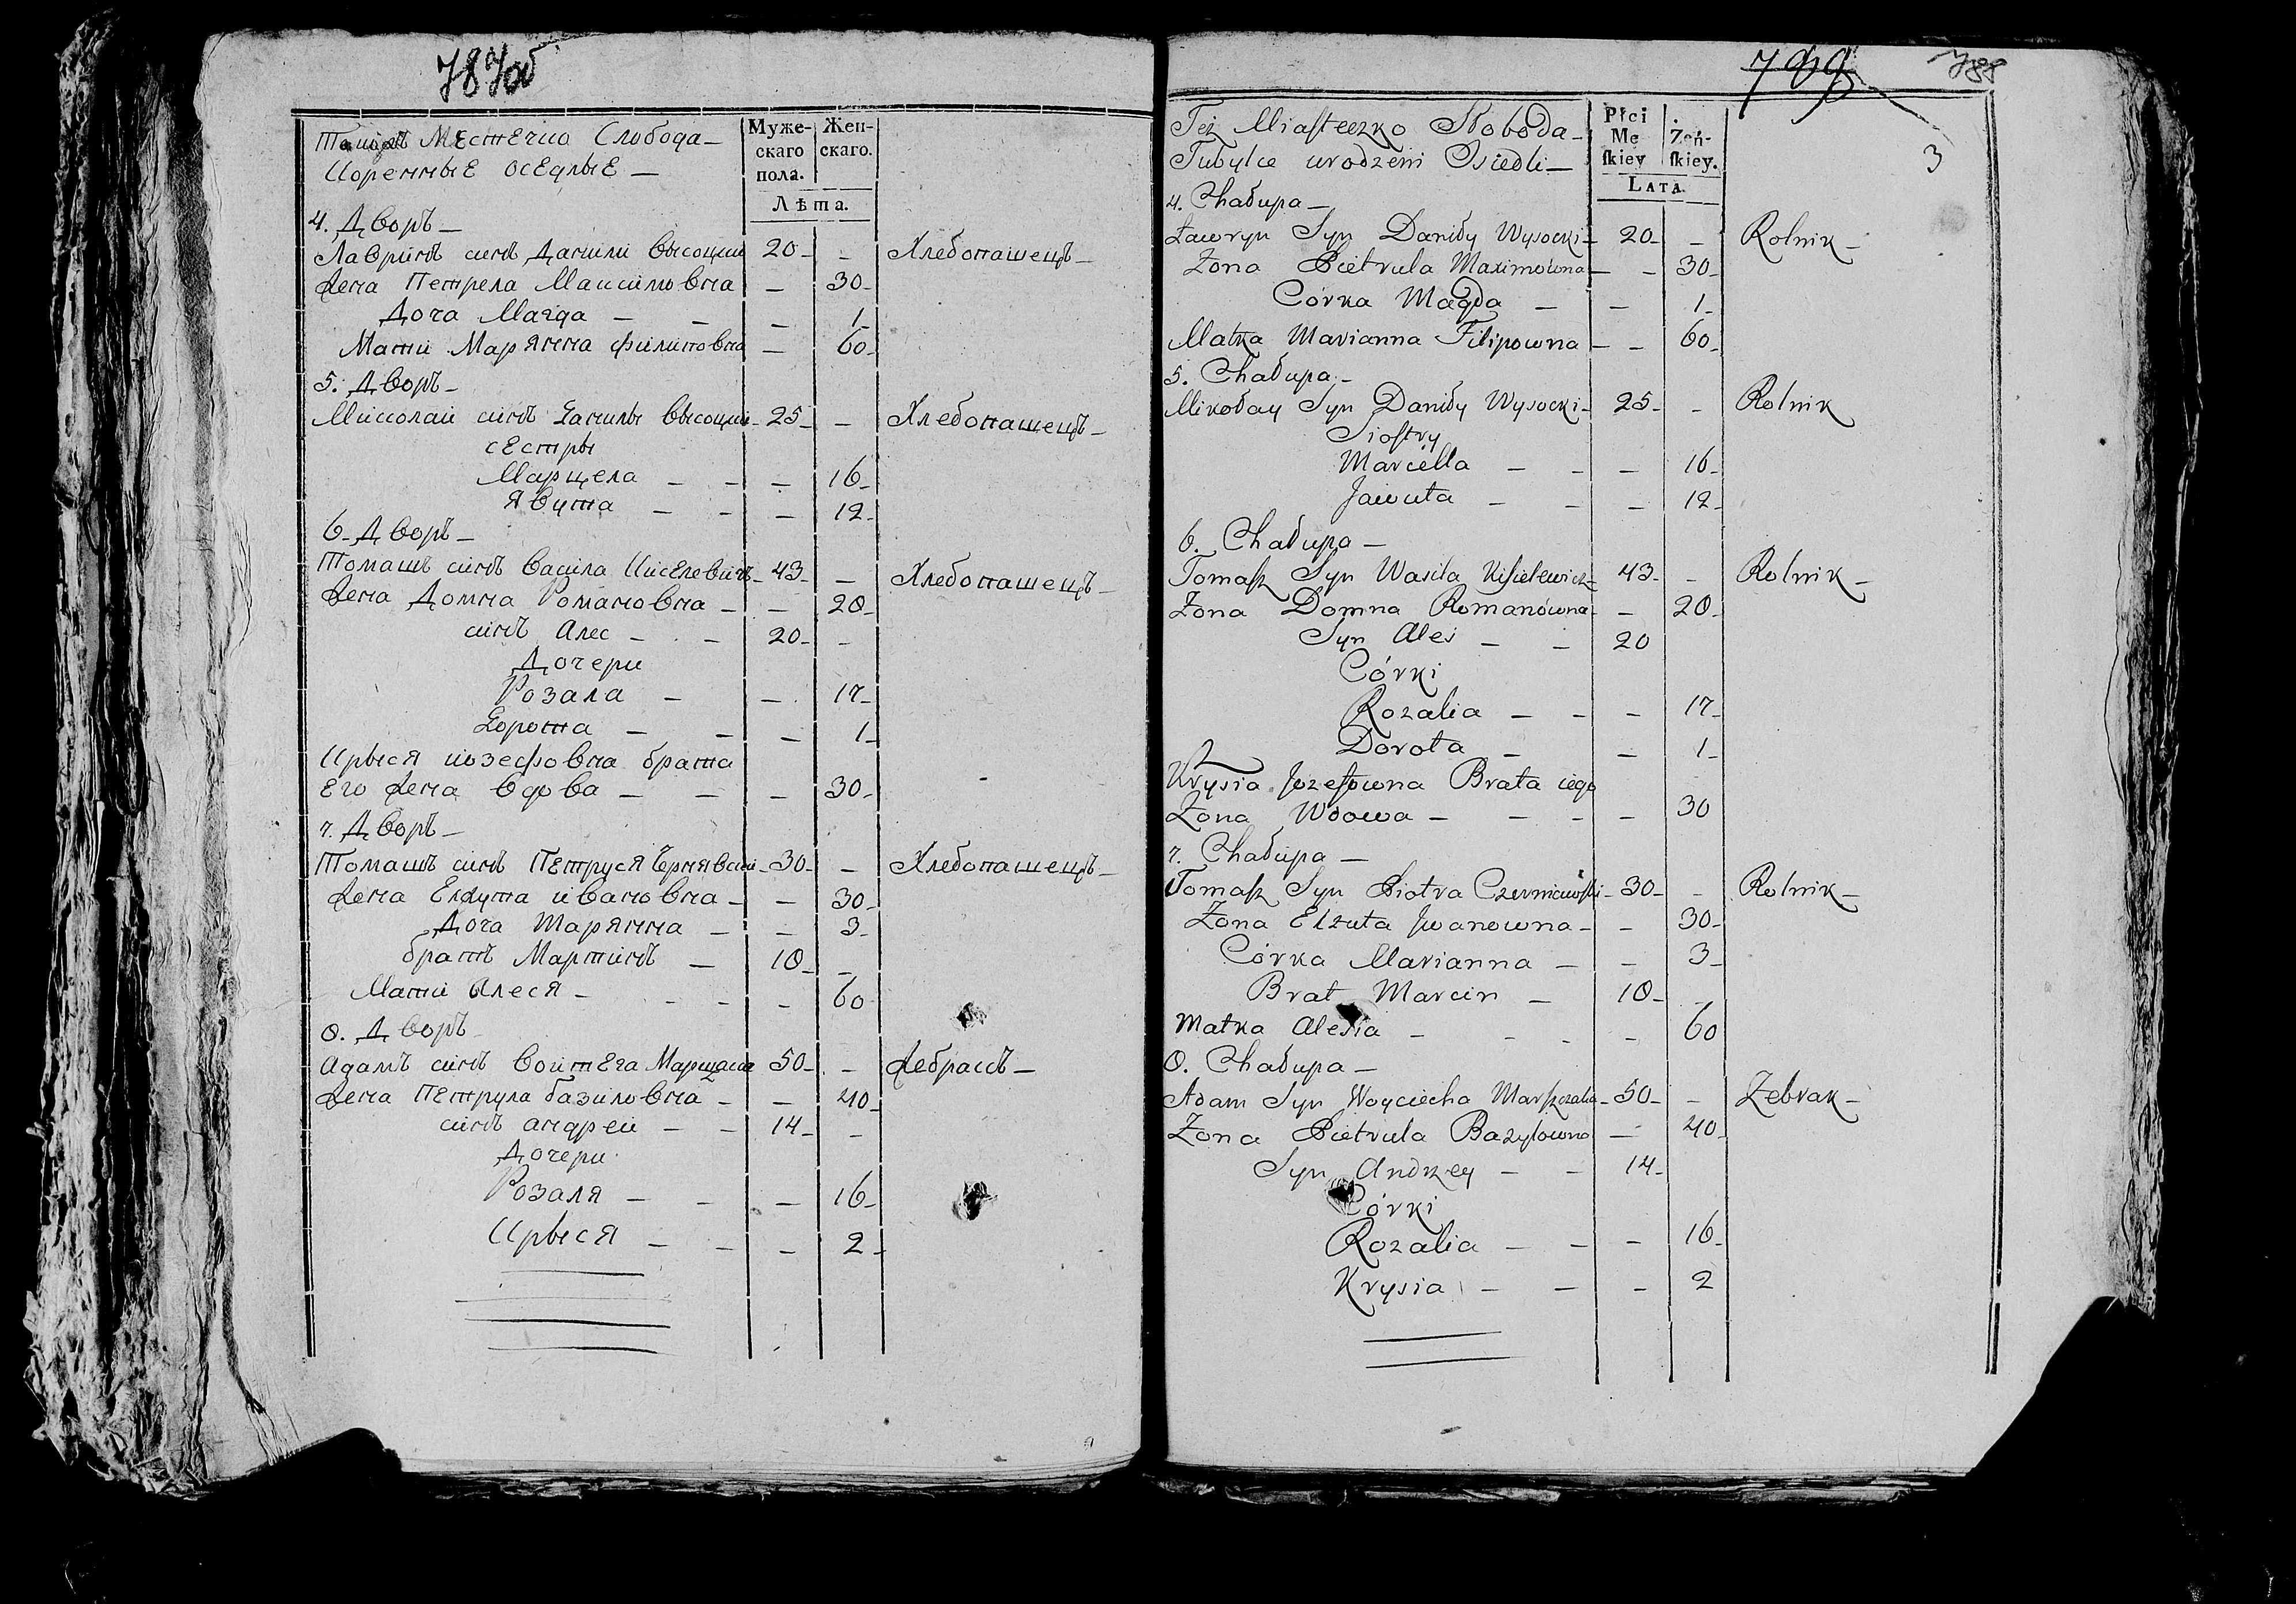 787об
Тогожъ Местечко Слобода
Коренные оседлые
Муже-
скаго
пола.
Жен-
скаго.
Лѣта.
4. Дворъ
Лавринъ синъ Данили Высоцки 20 - Хлебопашецъ
Жена Петрела Максимовна - 30
Доча Магда - - - 1
Мати Марянна Филиповна - 60
5. Дворъ
Миколаи синъ Данилы Высоцки 25 - Хлебопашецъ
сестры
Марцела - - - 16
Явута - - - 12
6. Дворъ
Томашъ синъ Васила Киселевичъ 43 - Хлебопашецъ
Жена Домна Романовна - - 28
синъ Алес - - 20 -
Дочери
Розала - - 17
Дорота - - - 1
Крыся иозефовна брата
Его Жена вдова - - - 30
7. Дворъ
Томашъ синъ Петруся Чернявски 30 - Хлебопашецъ
Жена Елжута ивановна - - 30
Доча Марянна - - 3
братъ Мартинъ - 18 -
Мати Алеся - - - - 60
8. Дворъ
Адамъ синъ Войтеха 50 - Жебракъ
Жена Петрула базиловна - - 40
синъ андреи - - 14 -
Дочери
Розаля - - - 16
Крыся - - - 2
789 788
3
Też Miasteczko Słoboda
Tubylce urodzeni Osiedli
Płci
Mę
ſkiey
Żeń-
ſkiey.
Lata.
4. Chałupa
Ławryn Syn Daniły Wysocki 20 - Rolnik
Zona Pietrula Maximówna - - 30
Córka Magda - - 1
Matka Marianna Filipowna - - 60
5. Chałupa
Mikołay Syn Daniły Wysocki 25 - Rolnik
Sioſtry
Marcella - - - 16
Jawuta - - - 12
6. Chałupa
Tomaſz Syn Wasila Kiſielewicz 43 - Rolnik
Zona Domna Romanówna - 28
Syn Aleś - - 20
Córki
Rozalia - - - 17
Dorota - - 1
Krysia Jozefowna Brata iego
Zona Wdowa - - - - 30
7. Chałupa
Tomaſz Syn Piotra Czerniawſki 30 - Rolnik
Zona Elzuta Jwanowna - - 30
Córka Marianna - - 3
Brat Marcin - 18 -
Matka Alesia - - - - 60
8. Chałupa
Adam Syn Woyciecha Marſzczalia 50 - Zebrak
Zona Pietrula Bazylowna - 40
Syn Andrzey - - 14
Córki
Rozalia - - - 16
Krysia - - - 2